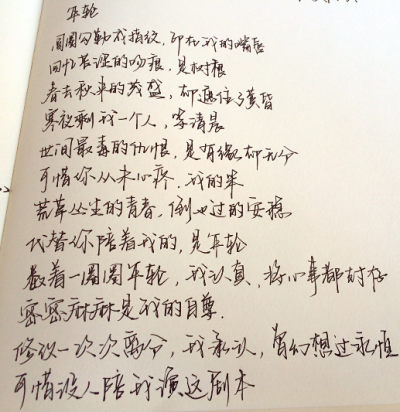 年轮
圆圈勾勒成指纹，印在我的嘴唇
回忆苦涩的吻痕，是树根
春去秋来的茂盛，却遮住了黄昏
寒夜剩我一个人，等清晨
世间最毒的仇恨，是有缘却无分
可惜你从未心疼，我的笨
荒草丛生的青春，倒也过的安稳
代替你陪着我的，是年轮
数着一圈圈年轮，我认真，将心事都封存
密密麻麻是我的自尊
修改一次次离分，我承认，曾幻想过永恒
可惜没人陪我演这剧本